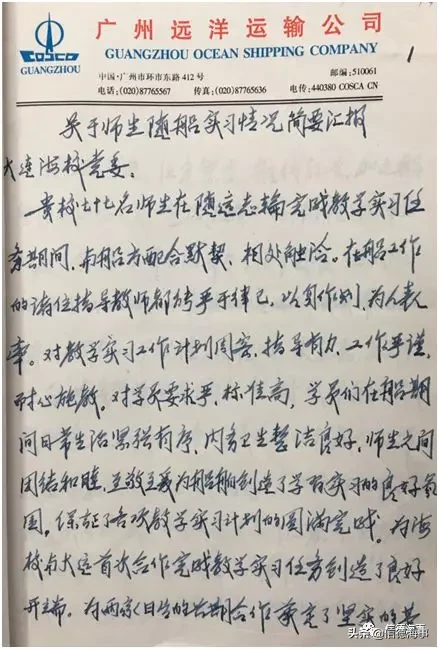 COSCO
GUANGZHOU
广州远洋运输公司
GUANGZHOU OCEAN SHIPPING COMPANY
中国·广州市环市东路 412 号 邮编:510061
电话:(020)87765567 传真:(020)87765636 电传:440380 COSCA CN
1
关于师生随船实习情况简要汇报
大连海校党委:
贵校七十七名师生在随运志轮完成教学实习任
务期间,与船方配合默契,相处融洽。在船工作
的诸位指导教师都能严于律己,以身作则,为人表
率。对教学实习工作计划周密,指导有力,工作严谨,
耐心施教。对学员要求严,标准高,学员们在船期
间日常生活紧张有序,内务卫生整洁良好,师生之间
团结和睦,互敬互爱为船舶创造了学习实习的良好氛
围,保证了各项教学实习计划的圆满完成。为海
校与大连首次合作完成教学实习任务创造了良好
开端。为两家日后的长期合作奠定了坚实的基
头条@信德海事